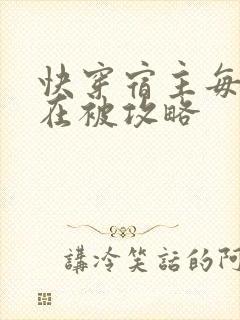 快穿宿主每
在被攻略
講冷笑話的阿